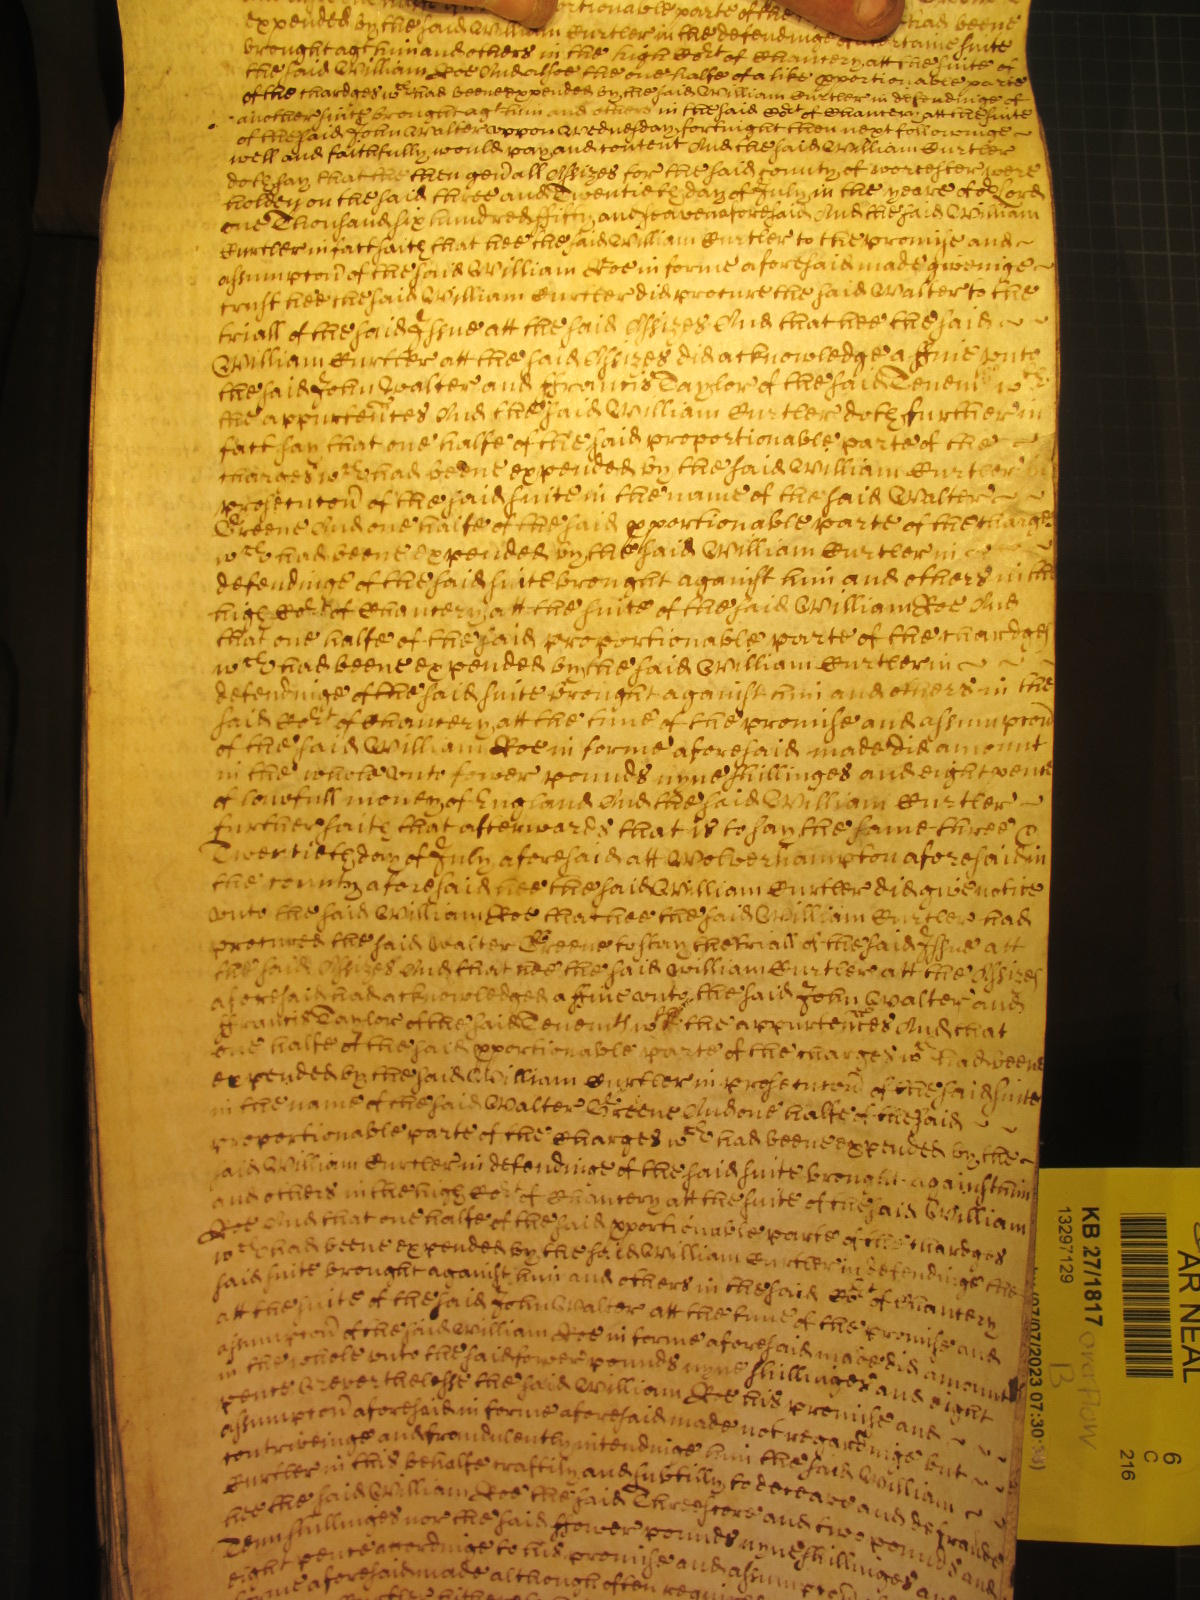 proportionable parte of the
expended by the said William Curtler in the defendinge of a certaine suite
brought agt him and others in the high Cort of Chancery att the suite of
the said William Roe And alsoe the one halfe of a like pportionable parte
of the chardges wch had beene expended by the said William Curtler in defendinge of
another suite brought agt him and others in the said Cort of Chancery att the suite
of the said John Walter uppon Wednesday fortnight then next followinge
well and faithfully would pay and content And the said William Curtler
doth say that the then genall Assizes for the said county of worcester were
holden on the said three and Twentieth day of July in the yeare of or Lord
one Thousand six hundred ffifty and seaven aforesaid And the said William
Curtler in fact saith that hee the said William Curtler to the promise and
assumpton of the said William Roe in forme aforesaid made giveinge
trust hee the said William Curtler did procure the said Walter to the
triall of the said Issue att the said Assizes And that hee the said
William Curtler att the said Assizes did acknowledge a ffine unto
the said John Walter and ffrancis Taylor of the said Tenemts wth
the appurtences And the said William Curtler doth further in
fact say that one halfe of the said proportionable parte of the
charges wch had beene expended by the said William Curtler in
prosecucon of the said suite in the name of the said Walter
Greene And one halfe of the said pportionable parte of the charges
wch had beene expended by the said William Curtler in
defendinge of the said suite brought against him and others in the
high Cort of Chancery att the suite of the said William Roe And
that one halfe of the said proportionable parte of the chardges
wch had beene expended by the said William Curtler in
defendinge of the said suite brought against him and others in the
said Cort of Chancery att the time of the promise and assumpcon
of the said William Roe in forme aforesaid made did amount
in the whole unto fower pounds nyne shillinges and eight pence
of lawfull money of England And the said William Curtler
further saith that afterwards that is to say the same three &
Twentieth day of July aforesaid att Wolverhampton aforesaid in
the county aforesaid hee the said William Curtler did give notice
unto the said William Roe that hee the said William Curtler had
procured the said Walter Greene to stay the triall of the said Issue att
the said Assizes And that hee the said William Curtler att the Assizes
aforesaid had acknowledged a ffine unto the said John Walter and
ffrancis Taylor of the said Tenemts wth the appurtences And that
one halfe of the said pportionable parte of the charges wch had beene
expended by the said William Curtler in prosecucon of the said suite
in the name of the said Walter Greene And one halfe of the said
proportionable parte of the Charges wch had beene expended by the
said William Curtler in defendinge of the said suite brought against him
and others in the high Cort of Chancery att the suite of the said William
Roe And that one halfe of the said pportionable parte of the chardges
wch had beene expended by the said William Curtler in defendinge the
said suite brought against him and others in the said Cort of Chancery
att the suite of the said John Walter att the time of the promise and
assumpton of the said William Roe in forme aforesaid made did amount
in the whole unto the said fower pounds nyne shillinges and eight
pence Neverthelesse the said William Roe his promise and
assumpton aforesaid in forme aforesaid made not regardinge but
contriveinge and fraudulently intendinge him the said William
Curtler in this behalfe craftily and subtilly to deceave and defraude
hee the said William Roe the said Threescore and two pounds and
Tenn shillinges nor the said ffower pounds nyne shillinges and
eight pence accordinge to his promise and assumpcon
forme aforesaid made although often
KB 27/1817
13297129
overflow
B
07/07/2023 07:30
AR NEAL
6
C
216